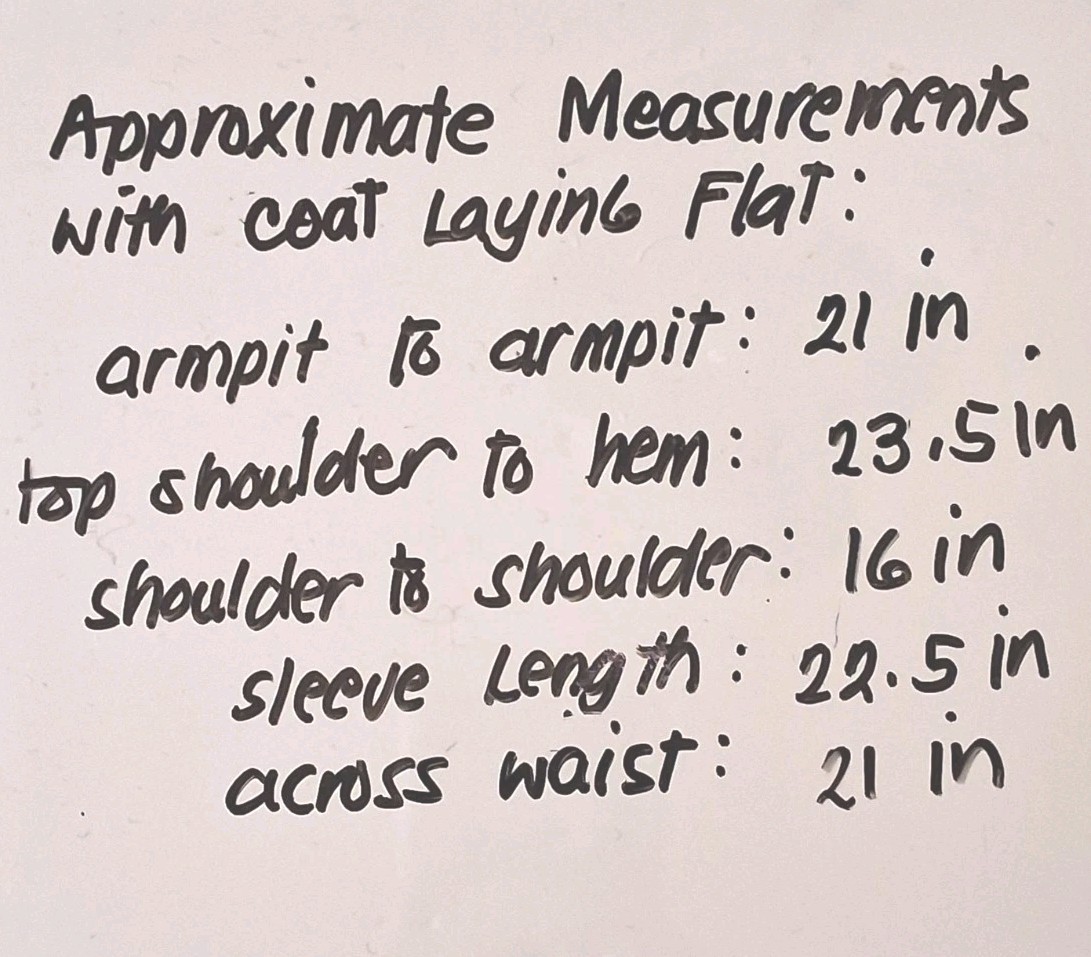 Approximate Measurements
with coat Laying Flat:
armpit to armpit: 21 in
top shoulder to hem: 23.5 in
shoulder to shoulder: 16 in
sleeve Length: 22.5 in
across waist: 21 in